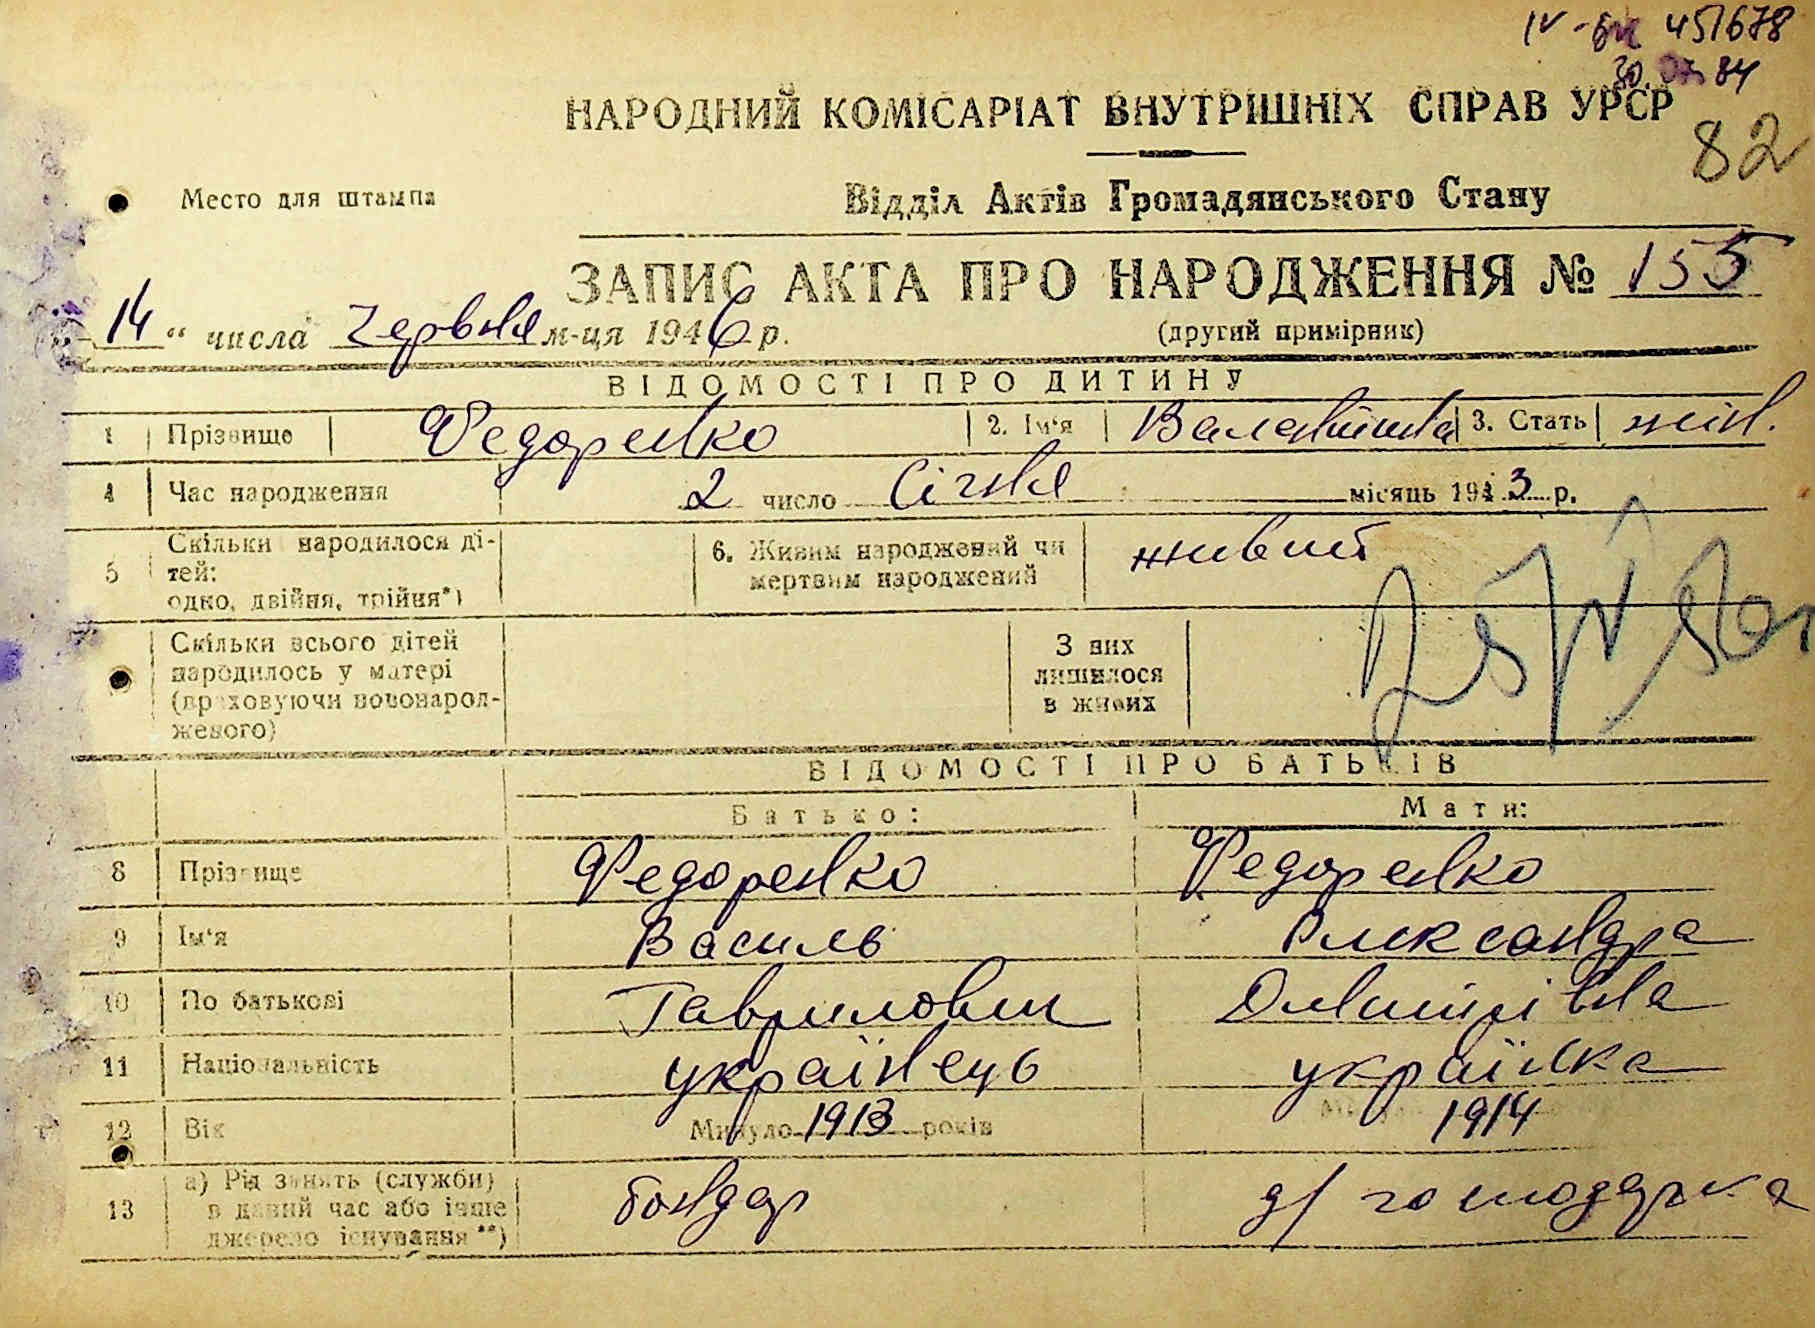 IV-БК 451678
30.07.84
НАРОДНИЙ КОМІСАРІАТ ВНУТРІШНІХ СПРАВ УРСР
82
Место для штампа
Відділ Актів Громадянського Стану
ЗАПИС АКТА ПРО НАРОДЖЕННЯ № 155
14 “ числа червня м-ця 1946 р.
(другий примірник)
ВІДОМОСТІ ПРО ДИТИНУ
1 Прізвище Федоренко 2. Ім'я Валентина 3. Стать жін.
4 Час народження 2 число Січня місяць 1943 р.
5 Скільки народилося ді-
тей:
одно, двійня, трійня*)
6. Живим народжений чи
мертвим народжений
живий
Скільки всього дітей
народилось у матері
(враховуючи новонарод-
женого)
З них
лишилося
в живих
ВІДОМОСТІ ПРО БАТЬКІВ
Батько: Мати:
8 Прізвище Федоренко Федоренко
9 Ім‘я Василь Олександра
10 По батькові Гаврилович Дмитрівна
11 Національність українець українка
12 Вік Минуло 1913 років 1914
13 а) Рід занять (служби)
в даний час або інше
джерело існування**)
бондар д/господарка